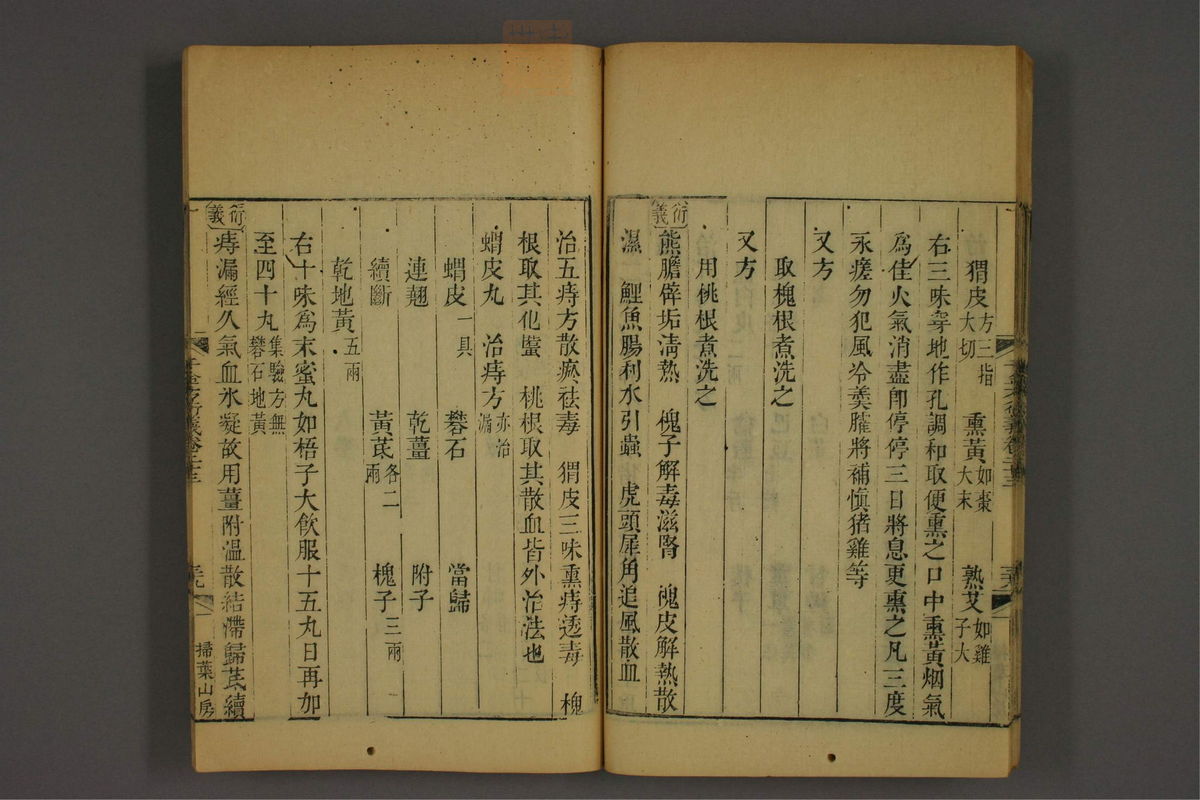 猬皮方三指大切 熏黃如棗大末 熟艾如雞子大
右三味穿地作孔調和取便熏之口中熏黃烟氣
爲佳火氣消盡卽停停三日將息更熏之凡三度
永瘥勿犯風冷羹臛將補愼猪雞等
又方
取槐根煮洗之
又方
用桃根煮洗之
衍義
熊膽僻垢淸熱 槐子解毒滋腎 槐皮解熱散
濕 鯉魚腸利水引蟲 虎頭犀角追風散血
治五痔方散瘀祛毒 猬皮三味熏痔透毒 槐
根取其化䘌 桃根取其散血皆外治法也
蝟皮丸 治痔方亦治漏
蝟皮一具 礬石 當歸
連翹 乾薑 附子
續斷 黃芪各二兩 槐子三兩
乾地黃五兩
右十味爲末蜜丸如梧子大飮服十五丸日再加
至四十丸集驗方無礬石地黃
衍義
痔漏經久氣血氷凝故用薑附溫散結滯歸芪續
千金方衍義卷二十三
掃葉山房